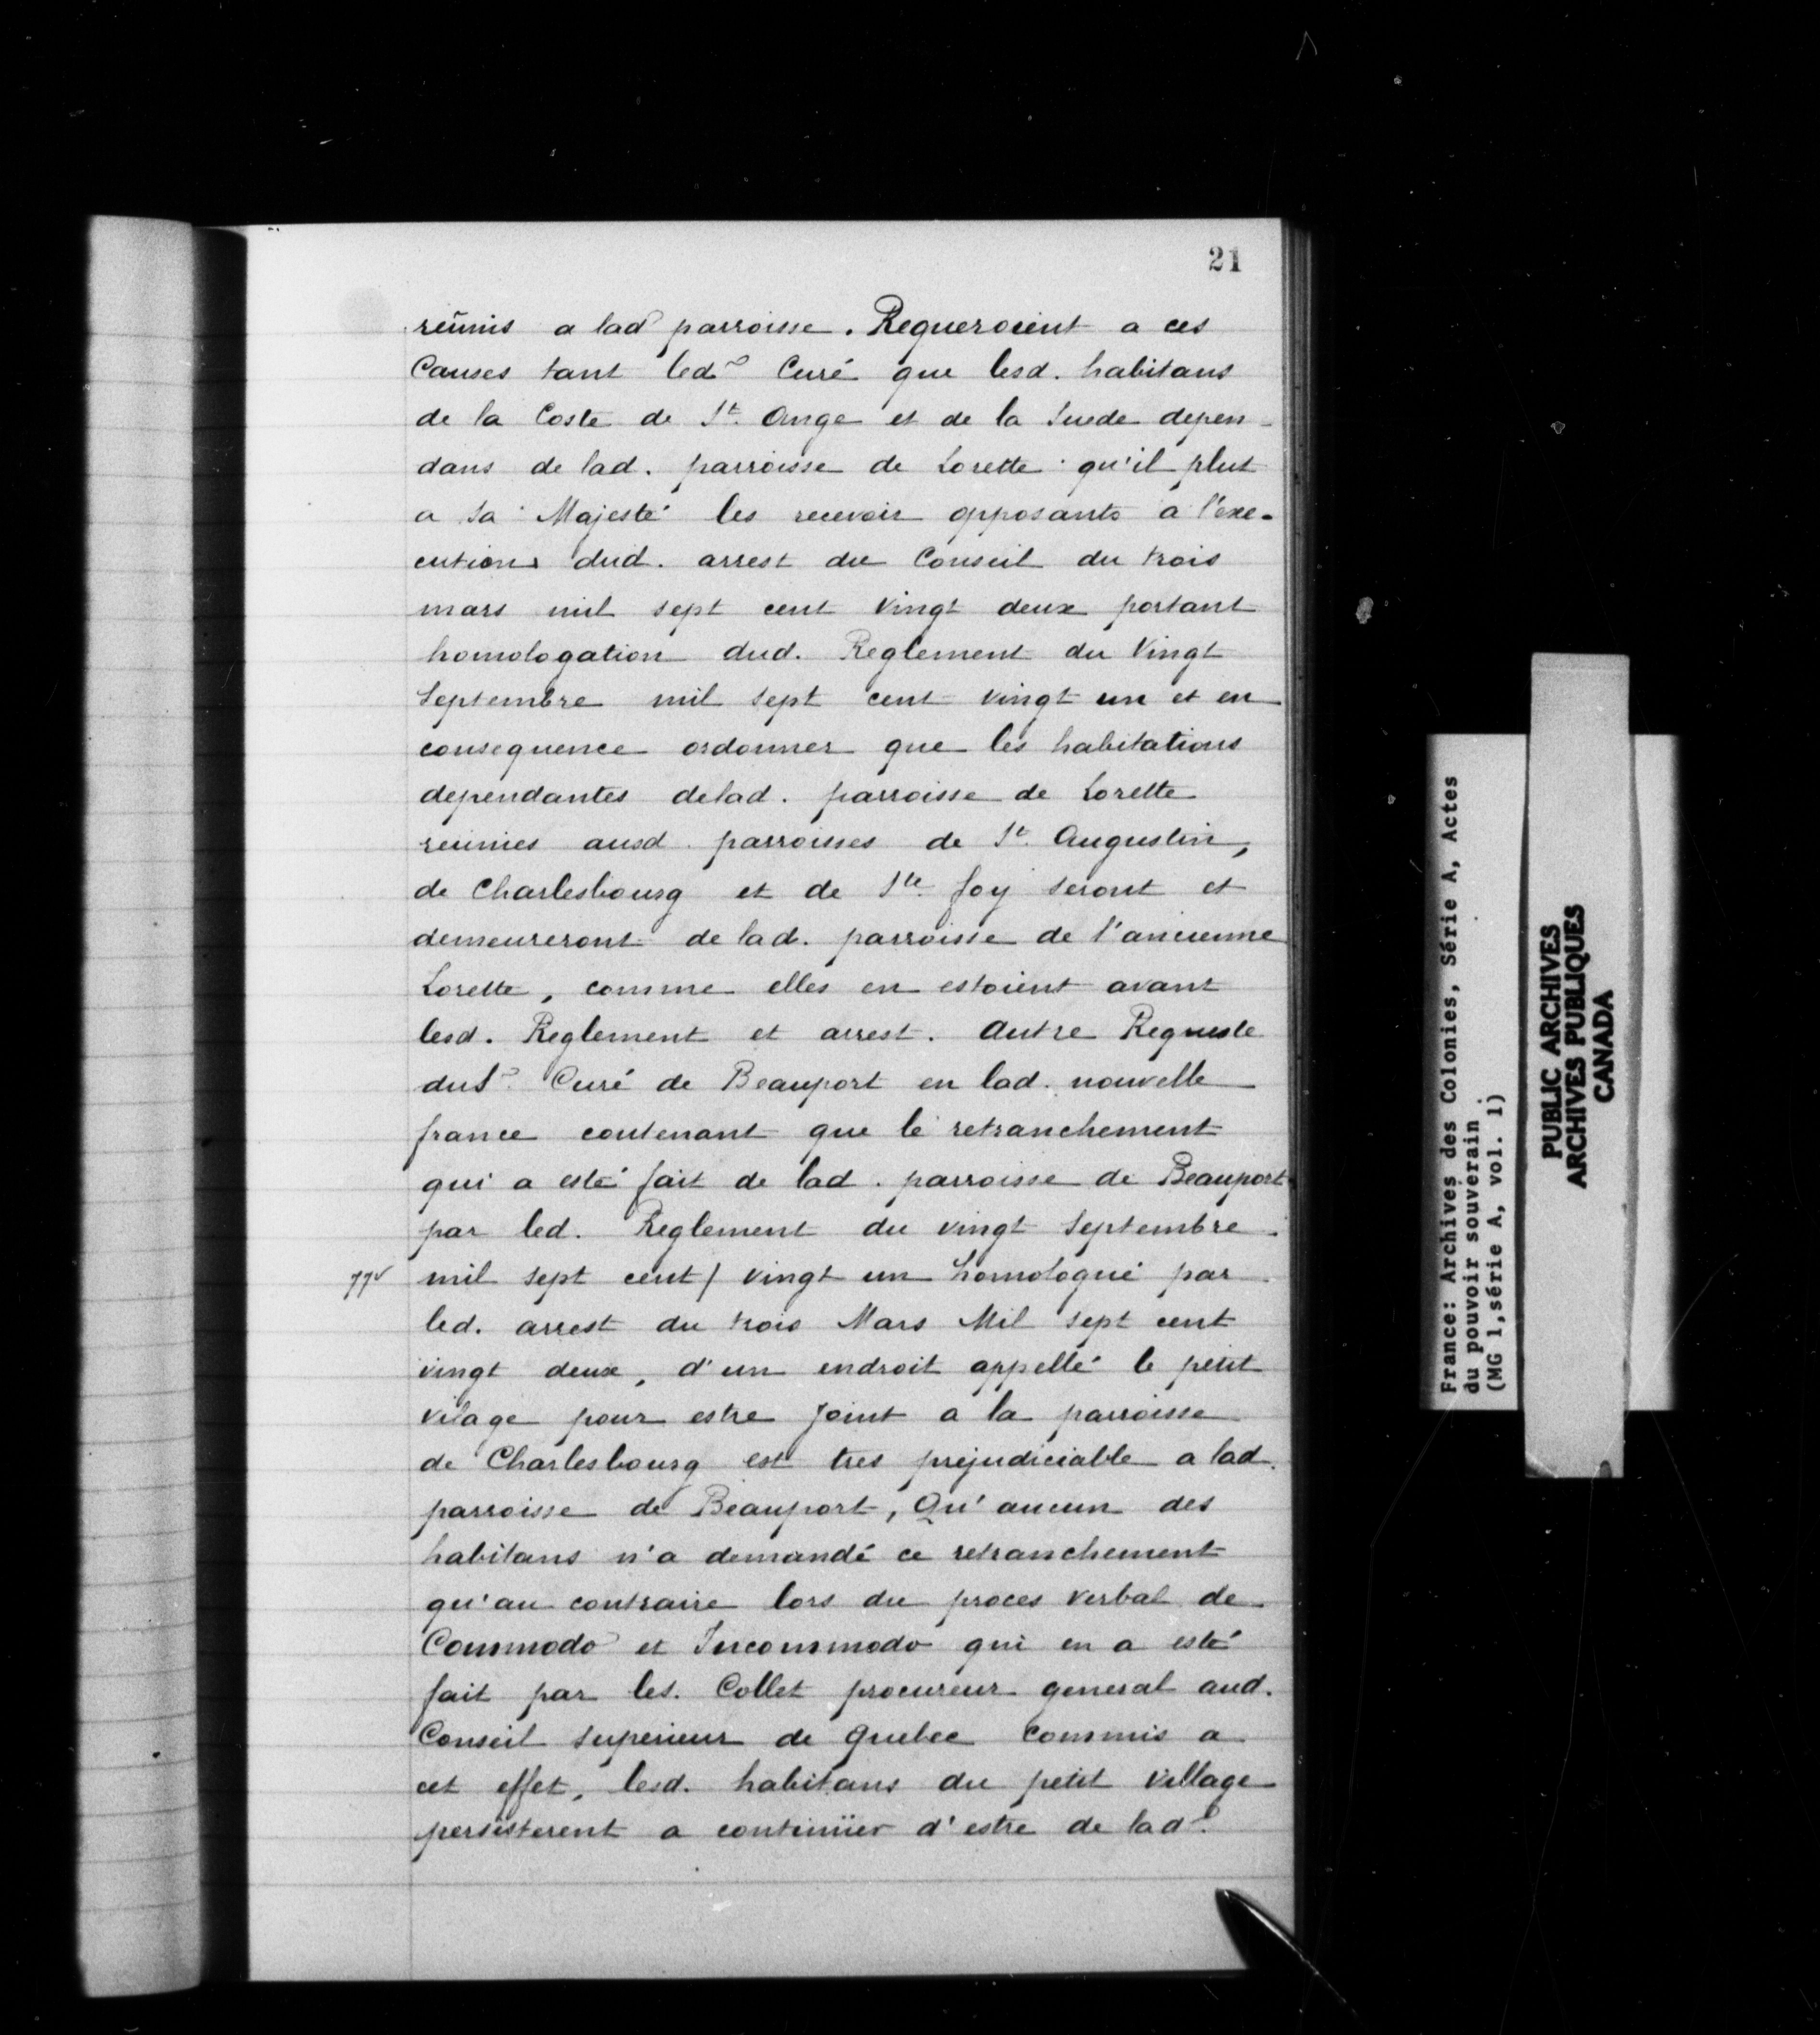 21
reünis a lad parroisse. Requeroient a ces
Causes tant led Curé que lesd. habitans
de la Coste de St. Ange et de la Suede depen-
dans de lad. parroisse de Lorette qu'il plut
a sa Majesté les recevoir opposants a l'exe-
cution dud. arrest du Conseil du trois
mars mil sept cent vingt deux portant
homologation dud. Reglement du Vingt
Septembre mil sept cent vingt un et en
consequence ordonner que les habitations
dependantes delad. parroisse de Lorette
reunies ausd. parroisses de St. Augustin,
de Charlesbourg et de Ste. foy seront et
demeureront de lad. parroisse de l'ancienne
Lorette, comme elles en estoient avant
lesd. Reglement et arrest. Autre Requeste
du S. Curé de Beauport en lad. nouvelle
france contenant que le retranchement
qui a esté fait de lad. parroisse de Beauport
par led. Reglement du vingt Septembre
77v mil sept cent / vingt un homologué par
led. arrest du trois Mars Mil sept cent
vingt deux, d'un endroit appellé le petit
vilage pour estre joint a la parroisse
de Charlesbourg est tres prejudiciable a lad.
parroisse de Beauport, Qu'aucun des
habitans n'a demandé ce retranchement
qu'au contraire lors du proces verbal de
Commodo et Incommodo qui en a esté
fait par les. Collet procureur general aud.
Conseil superieur de Quebec commis a
cet effet, lesd. habitans du petit village
persisterent a continüer d'estre de lad.
France: Archives des Colonies, Série A, Actes
du pouvoir souverain
(MG 1,série A, vol. 1)
PUBLIC ARCHIVES
ARCHIVES PUBLIQUES
CANADA